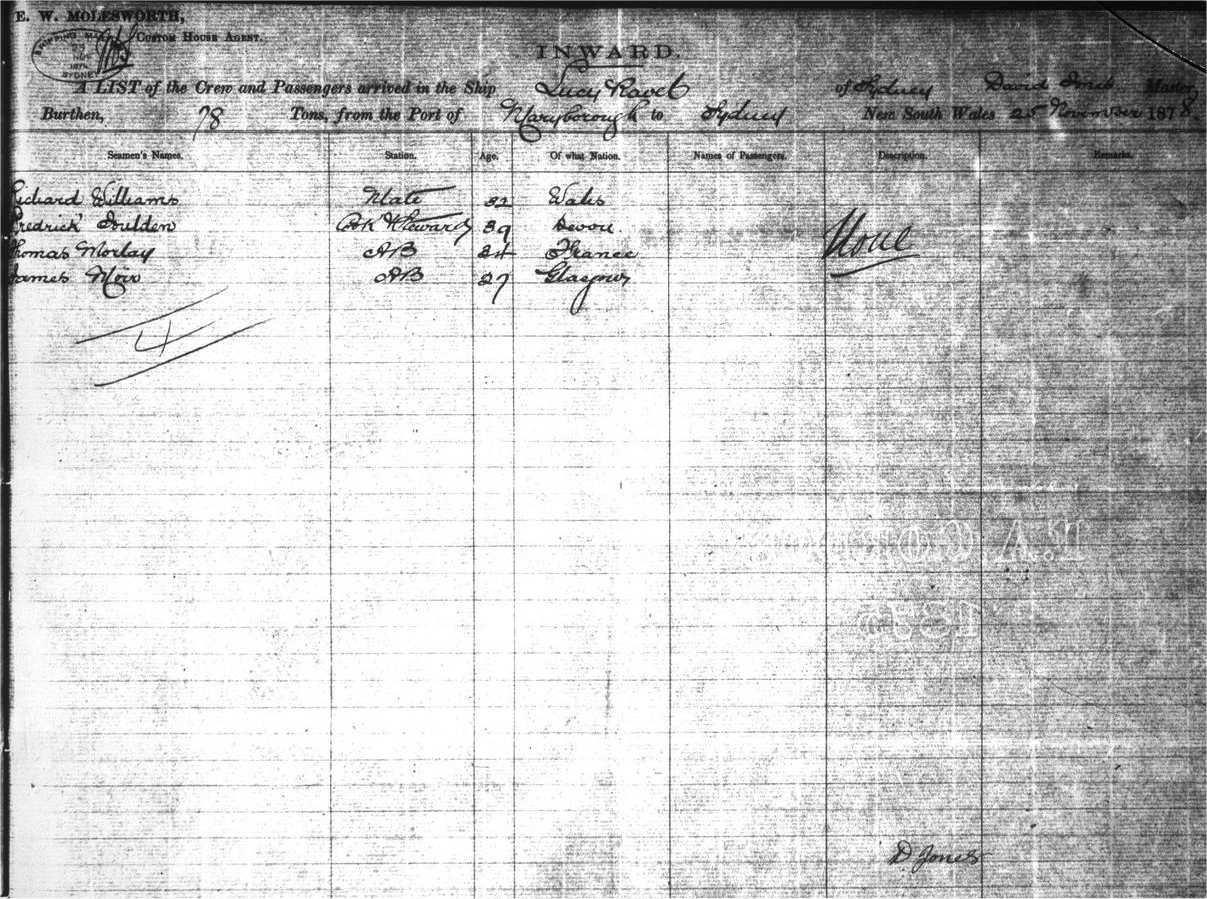 E. W. MOLESWORTH,
CUSTOM HOUSE AGENT.
SHIPPING
SYDNEY
INWARD.
A LIST of the Crew and Passengers arrived in the Ship Lucy Ravel of Sydney David Master
Burthen, 78 Tons, from the Port of Maryborough to Sydney New South Wales 25 November 1878.
Seamen's Names. Station. Age. Of what Nation. Names of Passengers. Description. Remarks.
Richard Williams Mate 32 Wales
Fredrick Coulden Steward 39 Devon. None
Thomas Morlay AB 24 France
James Moir AB 27 Glasgow
4
D Jones